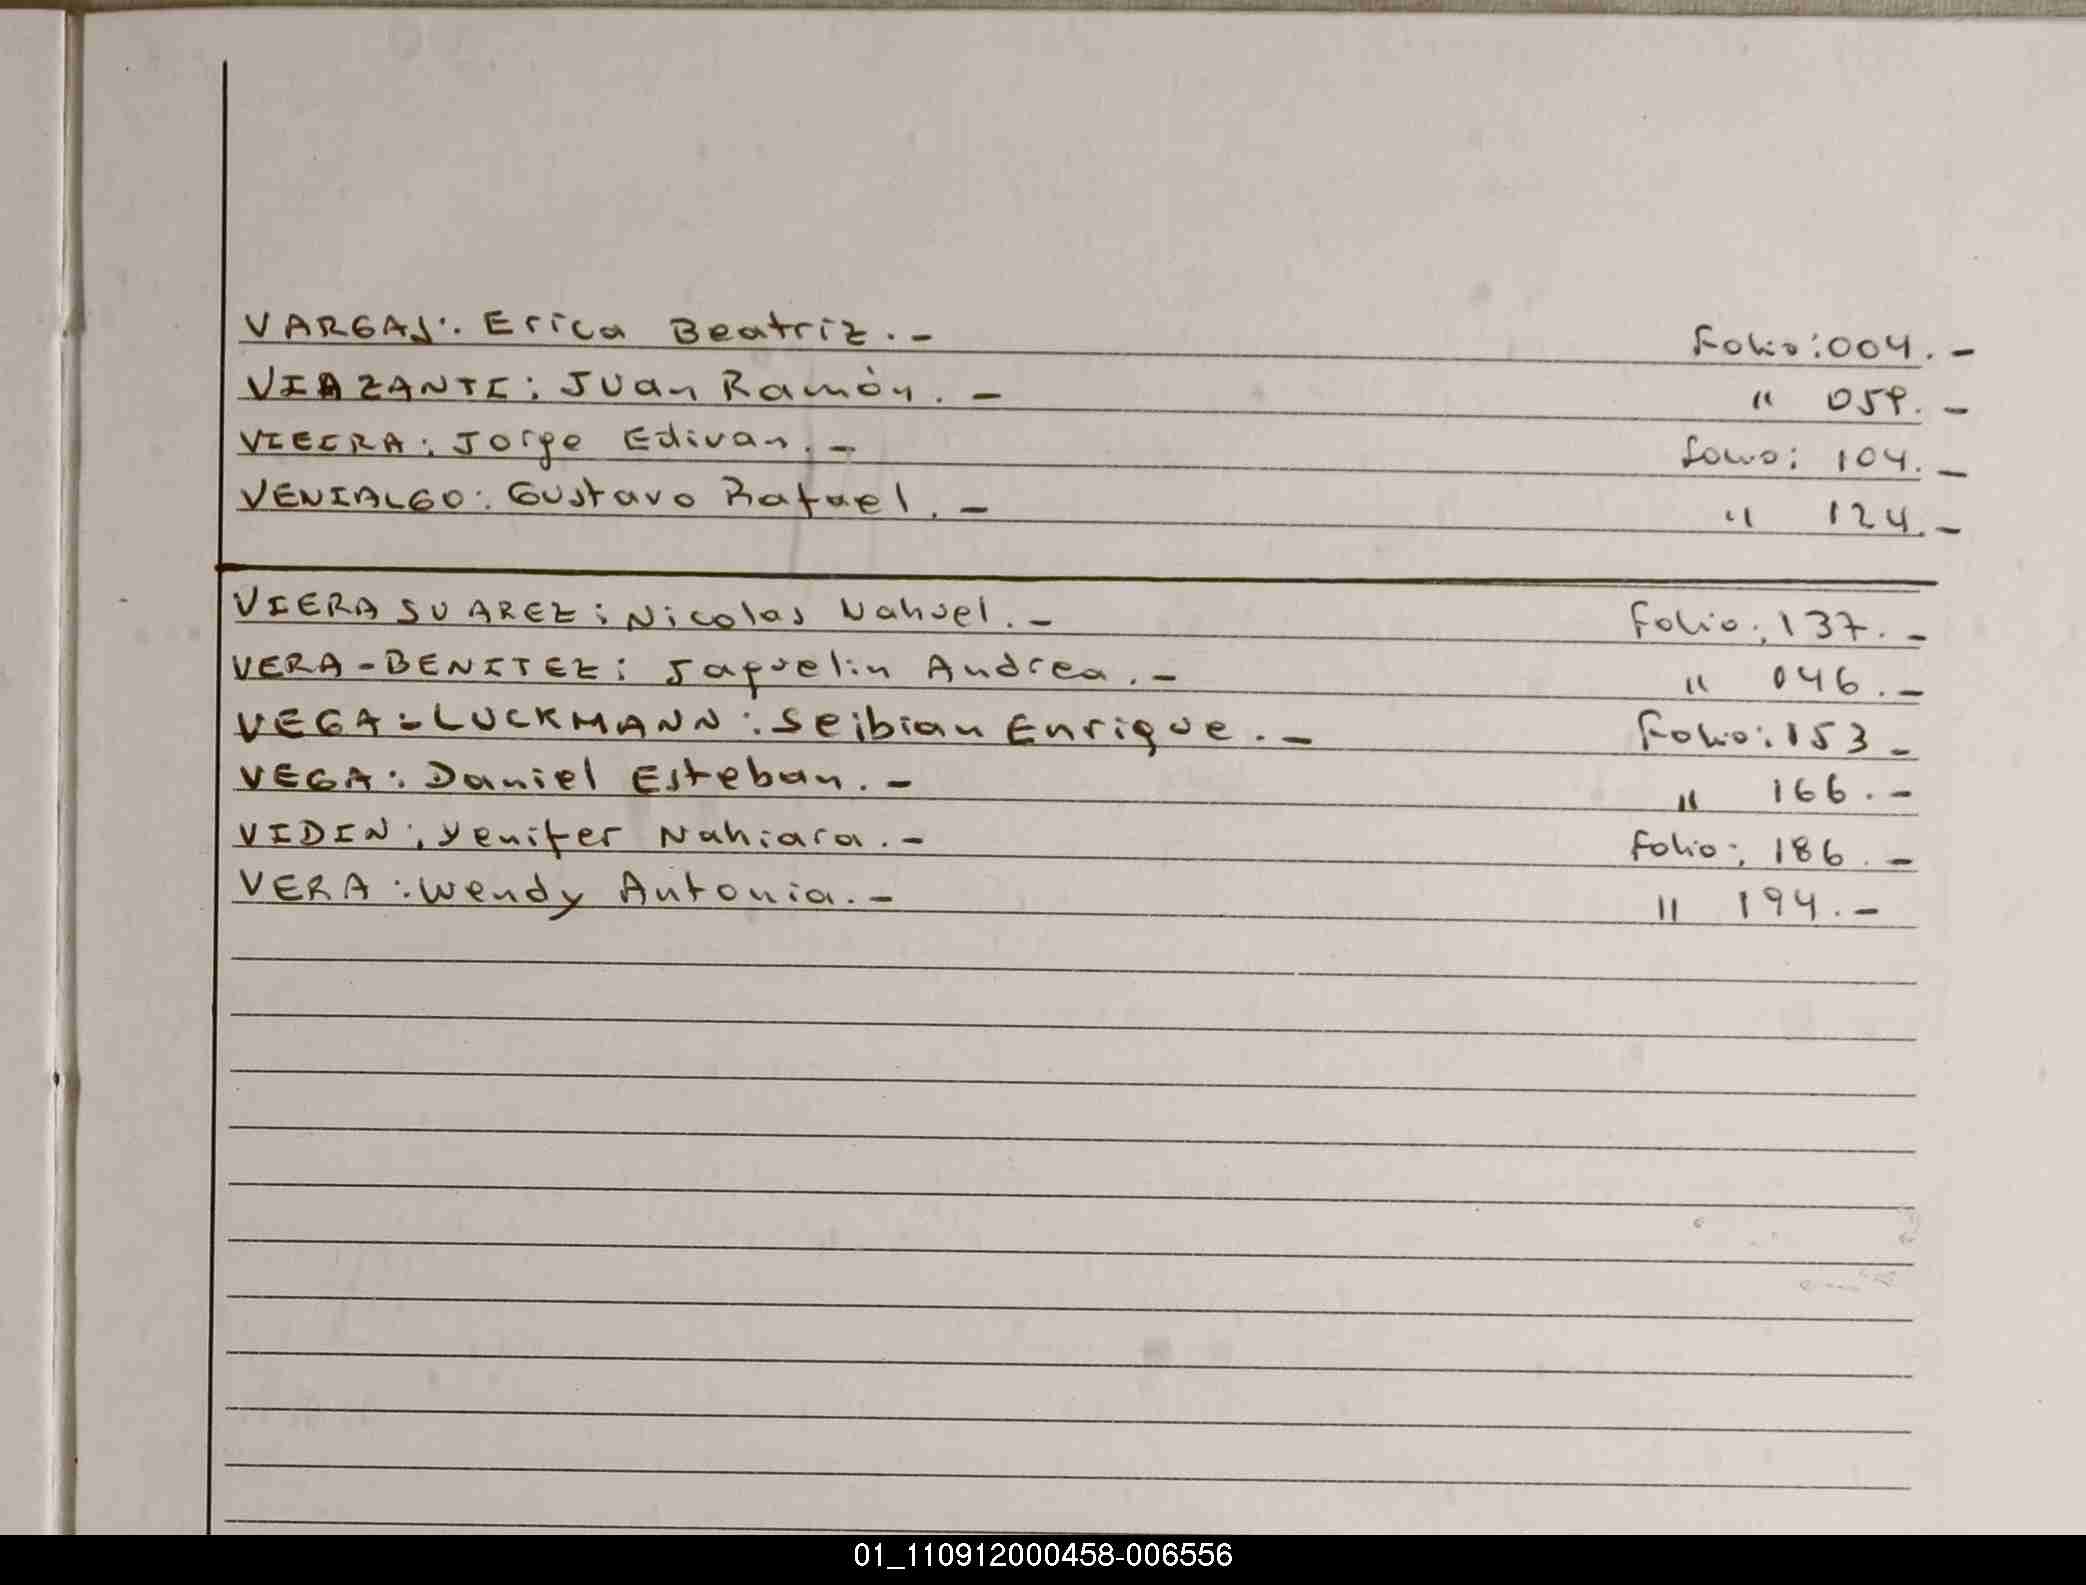 VARGAS: Erica Beatriz.- Folio: 004.-
VIAZANTE: Juan Ramón.- " 059.-
VIEIRA: Jorge Edivan.- Folio: 104.-
VENIALGO: Gustavo Rafael.- " 124.-
VIERA SUAREZ: Nicolas Nahuel.- Folio: 137.-
VERA-BENITEZ: Jaquelin Andrea.- " 046.-
VEGA-LUCKMANN: Seibian Enrique.- Folio: 153-
VEGA: Daniel Esteban.- " 166.-
VIDIN: Yenifer Nahiara.- Folio: 186.-
VERA: Wendy Antonia.- " 194.-
01_110912000458-006556